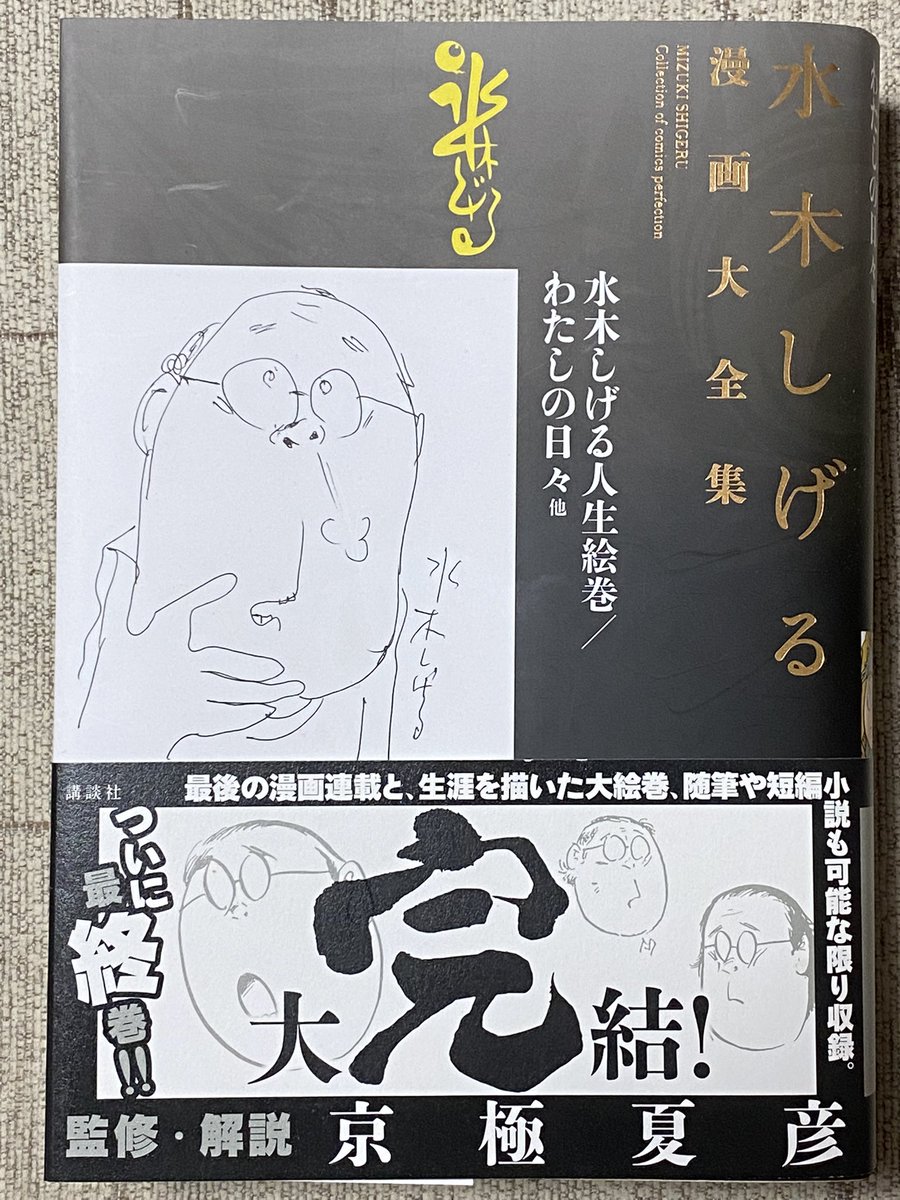 水木しげる
漫画大全集
MIZUKI SHIGERU
Collection of comics perfection
水木しげる
水木しげる人生絵巻／
わたしの日々 他
水木しげる
講談社
最後の漫画連載と、生涯を描いた大絵巻、随筆や短編小説も可能な限り収録。
ついに
最終巻!!
大完結!
監修・解説 京極夏彦